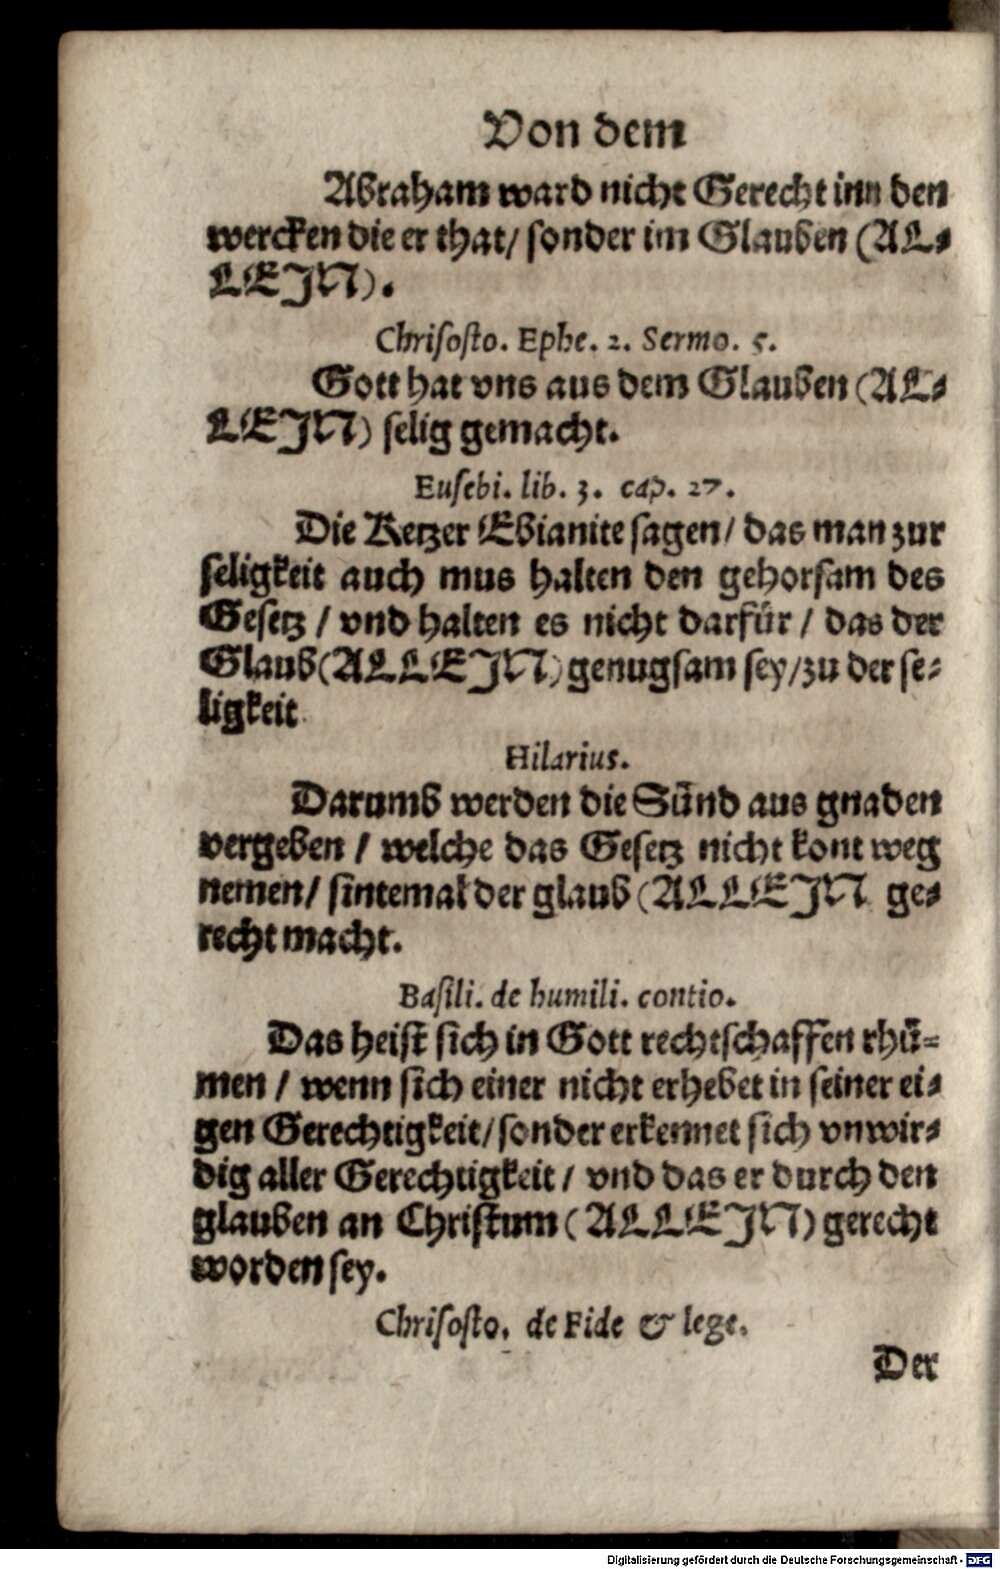 Von dem
Abraham ward nicht Gerecht inn den
wercken die er that/ sonder im Glauben (AL⸗
LEJN).
Chrisosto. Ephe. 2. Sermo. 5.
Gott hat vns aus dem Glauben (AL⸗
LEJN) selig gemacht.
Eusebi. lib. 3. cap. 27.
Die Ketzer Ebianite sagen/ das man zur
seligkeit auch mus halten den gehorsam des
Gesetz / vnd halten es nicht darfür / das der
Glaub (ALLEJN) genugsam sey/zu der se⸗
ligkeit
Hilarius.
Darumb werden die Sünd aus gnaden
vergeben / welche das Gesetz nicht kont weg
nemen/ sintemal der glaub (ALLEJN ge⸗
recht macht.
Basili. de humili. contio.
Das heist sich in Gott rechtschaffen rhü⸗
men / wenn sich einer nicht erhebet in seiner ei⸗
gen Gerechtigkeit/sonder erkennet sich vnwir⸗
dig aller Gerechtigkeit / vnd das er durch den
glauben an Christum (ALLEJN) gerecht
worden sey.
Chrisosto. de Fide & lege.
Der
Digitalisierung gefördert durch die Deutsche Forschungsgemeinschaft - DFG